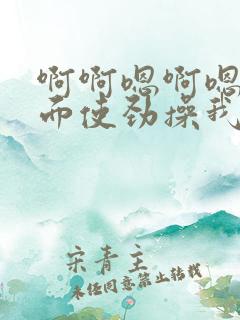 啊啊嗯啊嗯
而使劲操我
宋青主
未经同意禁止转载